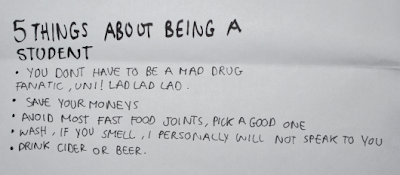 5 THINGS ABOUT BEING A
STUDENT
• YOU DONT HAVE TO BE A MAD DRUG
FANATIC, UNI! LAD LAD LAD.
• SAVE YOUR MONEYS
• AVOID MOST FAST FOOD JOINTS, PICK A GOOD ONE
• WASH, IF YOU SMELL, I PERSONALLY WILL NOT SPEAK TO YOU
• DRINK CIDER OR BEER.